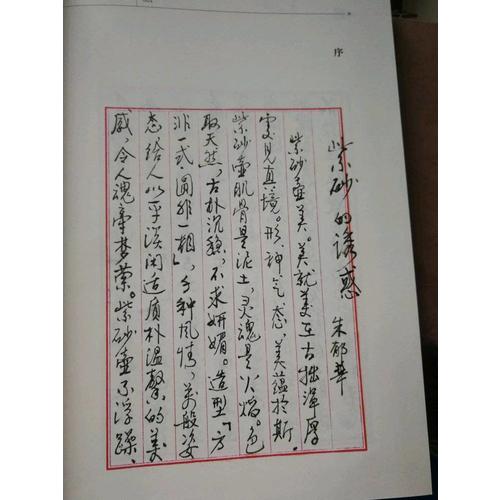 序
紫砂的诱惑
朱郁华
紫砂壶美。美就美在古拙浑厚
处见真境。形、神、气、态,美蕴于斯。
紫砂壶肌骨是泥土,灵魂是火焰。色
取天然,古朴沉稳,不求妍媚。造型「方
非一式,圆非一相」,千种风情,万般姿
态给人以平淡闲适质朴温馨的美
感,令人魂牵梦萦。紫砂壶不浮躁、